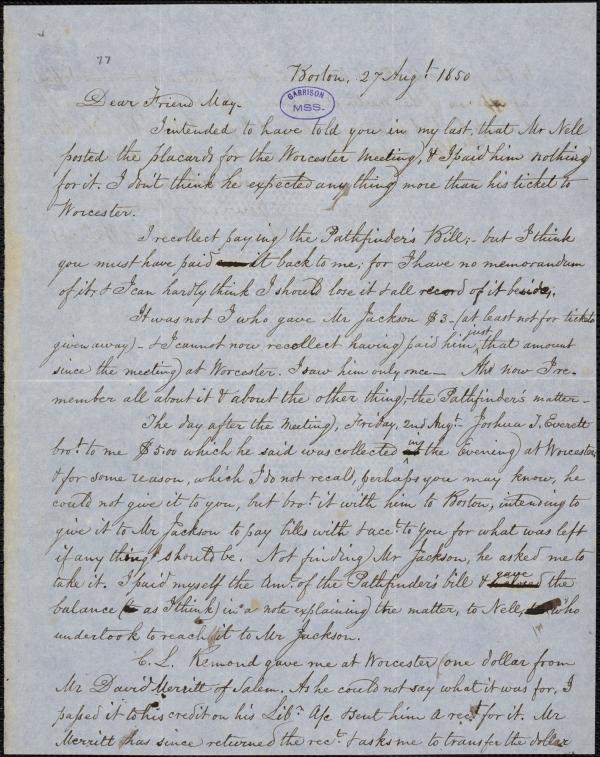 77
Boston, 27 Augt 1850
GARRISON
MSS.
Dear Friend May.
I intended to have told you in my last, that Mr Nell
posted the placards for the Worcester Meeting, & I paid him nothing
for it. I don't think he expected any thing more than his ticket to
Worcester.
I recollect paying the Pathfinder's Bill;- but I think
you must have paid it back to me; for I have no memorandum
of it; & I can hardly think I should lose it & all record of it beside.
It was not I who gave Mr Jackson $3- (at least not for tickets
given away) - & I cannot now recollect having paid him just that amount
since the meeting at Worcester. I saw him only once - Ah! now I re-
member all about it & about the other thing, the Pathfinder's matter -
The day after the Meeting, Friday, 2nd Augt. Joshua T. Everett
brot to me $5.00 which he said was collected in the Evening at Worcester,
& for some reason, which I do not recall, perhaps you may know, he
could not give it to you, but brot it with him to Boston, intending to
give it to Mr Jackson to pay bills with & acct to you for what was left
if any thing should be. Not finding Mr Jackson, he asked me to
take it. I paid myself the Amt. of the Pathfinder's bill & gave the
balance (as I think) in a note explaining the matter, to Nell, who
undertook to reach it to Mr Jackson.
C. L. Remond gave me at Worcester one dollar from
Mr David Merritt of Salem. As he could not say what it was for, I
passed it to his credit on his Libr. A/c & sent him a rect for it. Mr
Merritt has since returned the rect. & asks me to transfer the dollar